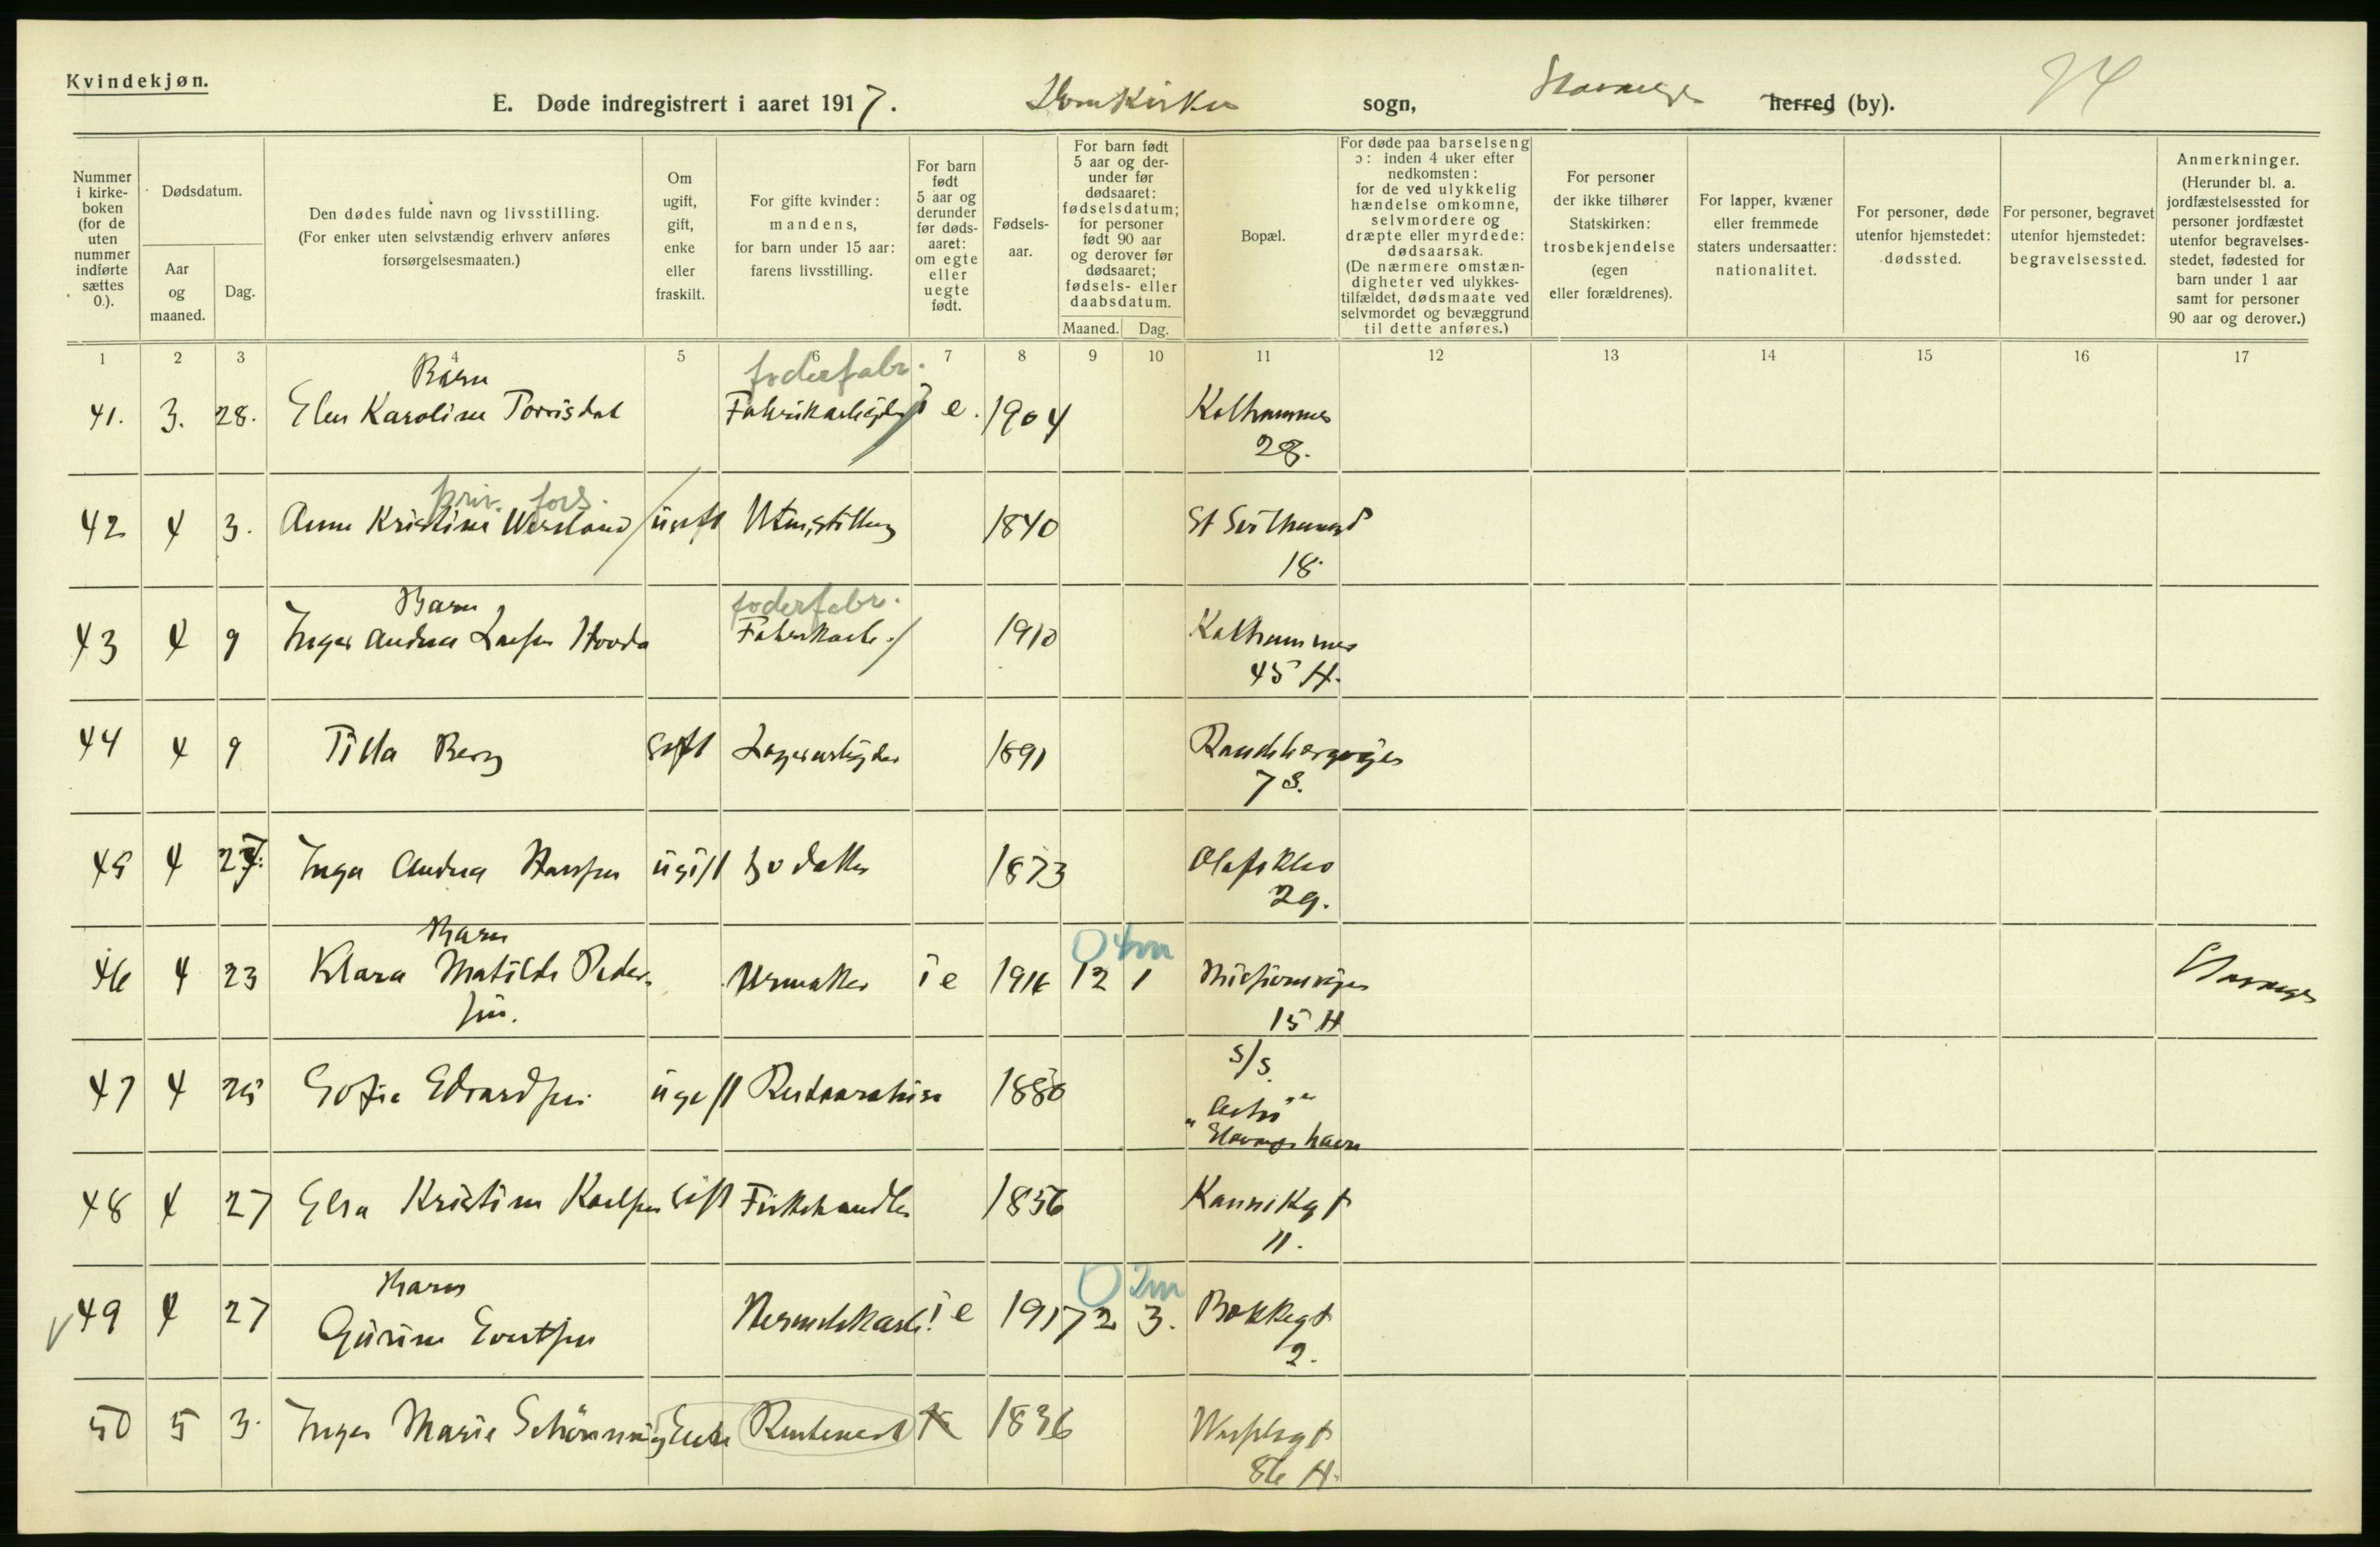 Kvindekjøn.
E. Døde indregistrert i aaret 1917. Domkirken sogn, Stavanger herred (by). 24
Nummer i kirke- boken (for de uten nummer indførte sættes 0.).
Dødsdatum.
Aar og maaned.
Dag.
Den dødes fulde navn og livsstilling.
(For enker uten selvstændig erhverv anføres
forsørgelsesmaaten.)
Om ugift, gift, enke eller fraskilt.
For gifte kvinder: mandens, for barn under 15 aar: farens livsstilling.
For barn født 5 aar og derunder før døds- aaret: om egte eller uegte født.
Fødsels- aar.
For barn født 5 aar og der- under før dødsaaret: fødselsdatum; for personer født 90 aar og derover før dødsaaret; fødsels- eller daabsdatum.
Maaned. Dag.
Bopæl.
For døde paa barselseng ɔ: inden 4 uker efter nedkomsten: for de ved ulykkelig hændelse omkomne, selvmordere og dræpte eller myrdede: dødsaarsak. (De nærmere omstæn- digheter ved ulykkes- tilfældet, dødsmaate ved selvmordet og bevæggrund til dette anføres.)
For personer der ikke tilhører Statskirken: trosbekjendelse (egen eller forældrenes).
For lapper, kvæner eller fremmede staters undersaatter: nationalitet.
For personer, døde utenfor hjemstedet: dødssted.
For personer, begravet utenfor hjemstedet: begravelsessted.
Anmerkninger. (Herunder bl. a. jordfæstelsessted for personer jordfæstet utenfor begravelses- stedet, fødested for barn under 1 aar samt for personer 90 aar og derover.)
1 2 3 4 5 6 7 8 9 10 11 12 13 14 15 16 17
Barn foderfabr.
41. 3. 28. Elen Karoline Torrisdal Fabrikarbeider i e. 1904 Kalhammer
28.
priv. fors.
42 4 3. Anne Kristine ugift 1840 St
18.
Barn foderfabr.
43 4 9 Inger Andrea Hovda Fabrikarb. 1910 Kalhammer
45 H.
44 4 9 Tilla Berg Gift Lagerarbeider 1891 Randebergveien
7 S.
45 4 27. Inga Andrea Hansen ugift 1873 Olafsklev
29.
Barn 0 4m
46 4 23 Klara Matilde Peder- Urmaker i e 1916 12 1 Misjonsveien Stavanger
sen. 15 H
S/S.
47 4 25 Sofie Edvardsen ugift 1880
Stavanger havn
48 4 27 Elsa Kristine Karlsen Gift Fiskehandler 1856 Kannikgt
11.
Barn 0 2m
49 4 27 Gurine Evertsen Hermetikarb. i e 1917 2 3. Bakkegt
2.
50 5 3. Inger Marie Schönning Enke 1836
86 H.